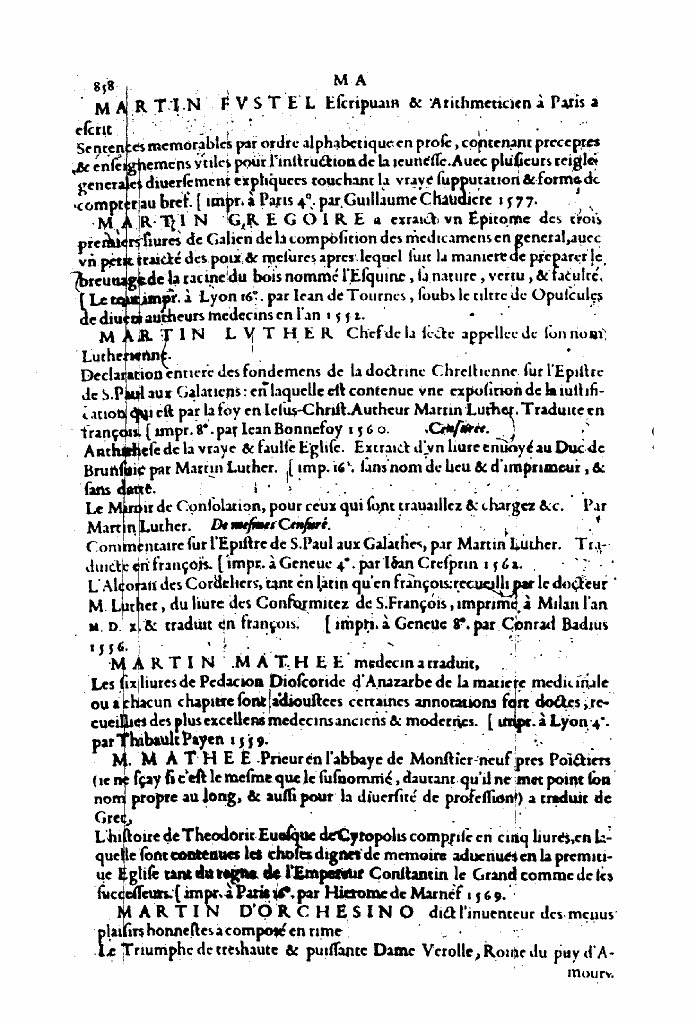 858
M A
MARTIN FVSTEL Eſcripuain & Arithmeticien à Paris a
eſcrit
Sentences memorables par ordre alphabetique en proſe, contenant preceptes
& enſeighemens vtiles pour l'inſtruction de la ieuneſſe. Auec pluſieurs reigles
generales diuerſement expliquees touchant la vraye ſupputation & forme de
compter au bref. [ impr. à Paris 4°. par Guillaume Chaudiere 1577.
MARTIN GREGOIRE a extraict vn Epitome des trois
premiers liures de Galien de la compoſition des medicamens en general, auec
vn petit traicté des poix & meſures apres lequel ſuit la maniere de preparer le
breuuage de la racine du bois nommé l'Eſquine, ſa nature, vertu, & faculté.
[ Le tout impr. à Lyon 16°. par Iean de Tournes, ſoubs le tiltre de Opuſcules
de diuers autheurs medecins en l'an 1552.
MARTIN LVTHER Chef de la ſecte appellee de ſon nom
Lutherienne.
Declaration entiere des fondemens de la doctrine Chreſtienne ſur l'Epiſtre
de S. Paul aux Galatiens: en laquelle eſt contenue vne expoſition de la iuſtifi-
cation qui eſt par la foy en Ieſus-Chriſt. Autheur Martin Luther. Traduite en
françois. [ impr. 8°. par Iean Bonnefoy 1560. Cenſurée.
Antitheſe de la vraye & faulſe Egliſe. Extraict d'vn liure enuoyé au Duc de
Brunſuic par Martin Luther. [ imp. 16°. ſans nom de lieu & d'imprimeur, &
ſans datte.
Le Miroir de Conſolation, pour ceux qui ſont trauaillez & chargez &c. Par
Martin Luther. De meſmes Cenſuré.
Commentaire ſur l'Epiſtre de S. Paul aux Galathes, par Martin Luther. Tra-
duicte en françois. [ impr. à Geneue 4°. par Iean Creſprin 1562.
L'Alcoran des Cordeliers, tant en latin qu'en françois: recueilli par le docteur
M. Luther, du liure des Conformitez de S. François, imprimé à Milan l'an
M. D. X. & traduit en françois. [ impri. à Geneue 8°. par Conrad Badius
1556.
MARTIN MATHEE medecin a traduit,
Les ſix liures de Pedacion Dioſcoride d'Anazarbe de la matiere medicinale
ou a chacun chapitre ſont adiouſtees certaines annotations fort doctes, re-
cueillies des plus excellens medecins anciens & modernes. [ impr. à Lyon 4°.
par Thibault Payen 1559.
M. MATHEE Prieur en l'abbaye de Monſtier-neuf pres Poictiers
(ie ne ſçay ſi c'eſt le meſme que le ſuſnommé, dautant qu'il ne met point ſon
nom propre au long, & auſſi pour la diuerſité de profeſſion) a traduit de
Grec,
L'hiſtoire de Theodorit Eueſque de Cyropolis compriſe en cinq liures, en la-
quelle ſont contenues les choſes dignes de memoire aduenues en la premiti-
ue Egliſe tant du regne de l'Empereur Conſtantin le Grand comme de ſes
ſucceſſeurs. [ impr. à Paris 16°. par Hieroſme de Marnef 1569.
MARTIN D'ORCHESINO dict l'inuenteur des menus
plaiſirs honneſtes a compoſé en rime
Le Triumphe de treshaute & puiſſante Dame Verolle, Roine du puy d'A-
mours.